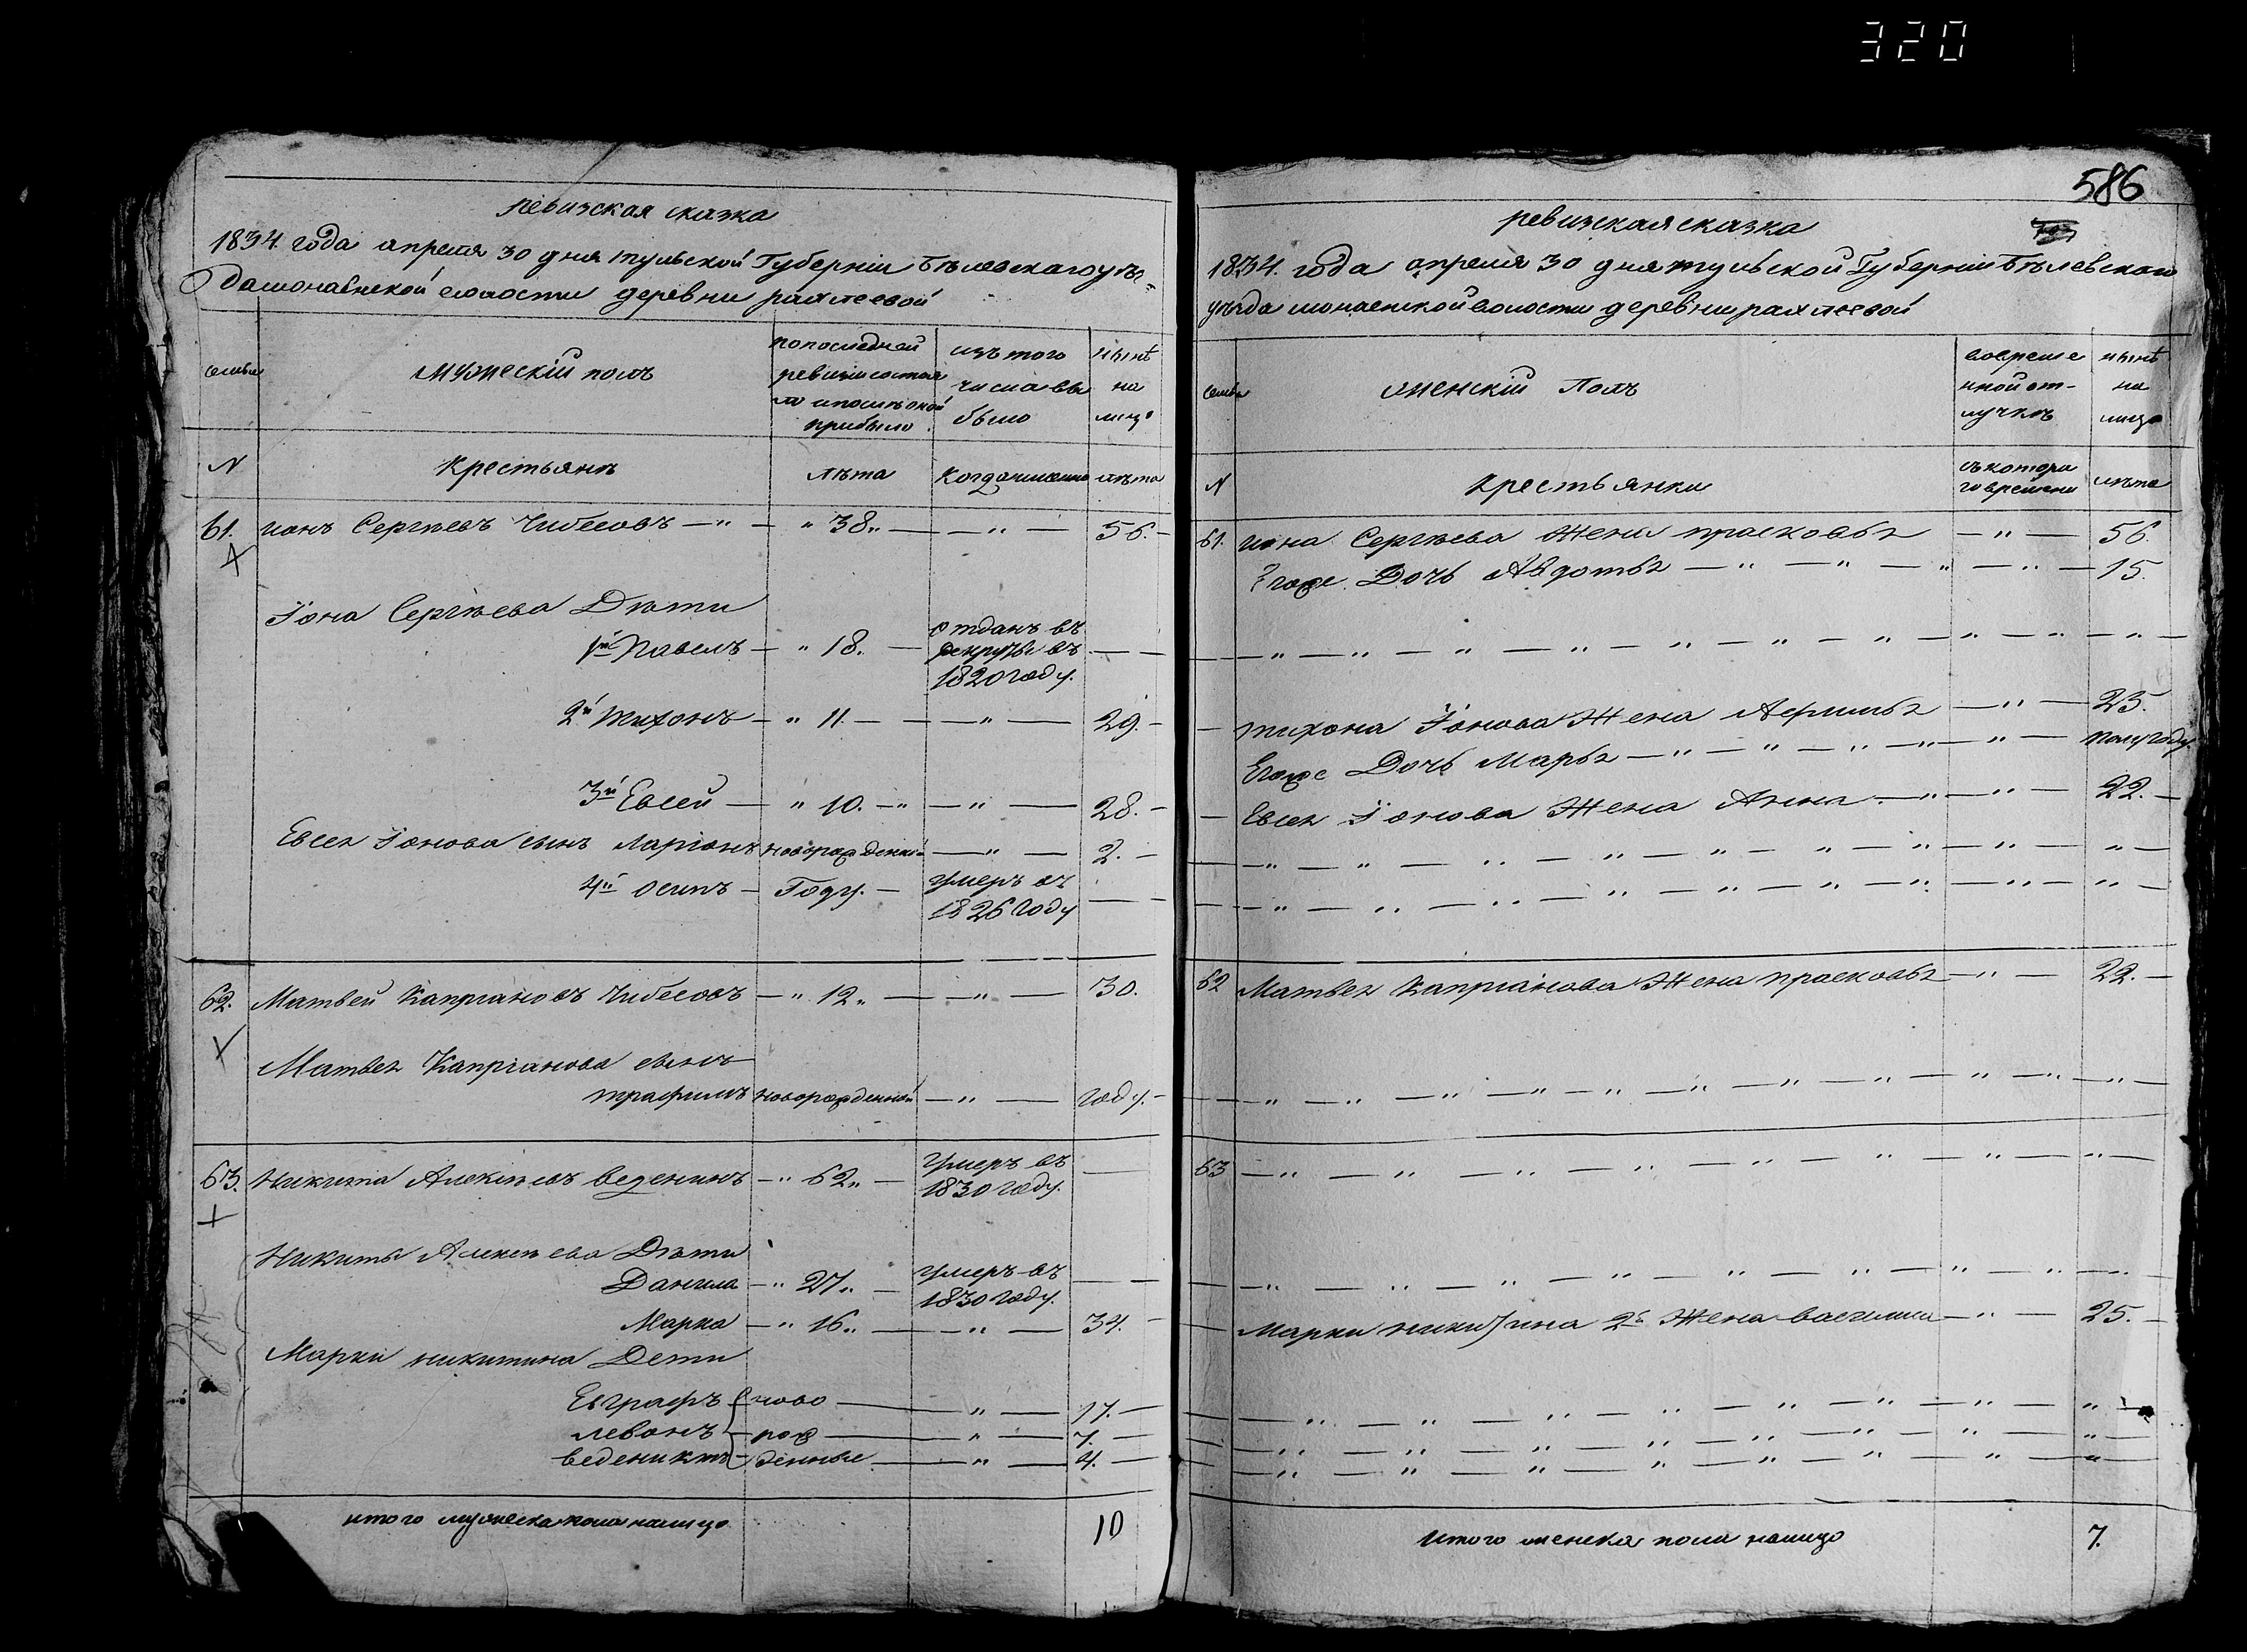 320
ревизская сказка
1834. года апреля 30 дня тульской Губерніи Бѣлевскаго уѣз=
да монаенской волости деревни рахлеевой
семьи
мужескій полъ
по последней
ревизіи состоя
ло и после оной
прибыло
изъ того
числа вы
было
нынѣ
на
лицо
N
Крестьянѣ
лѣта
Когда именно
лѣта
61. ионъ Сергѣевъ Чибесовъ — " — " 38 " — — " — 56. —
Іона Сергѣева Дѣти
1й Павелъ — " 18 " — отданъ въ рекруты въ 1820 году. — —
2й тихонъ — " 11. — — " — 29. —
3й Евсей — " 10. — " — " — 28. —
Евсея Іонова сынъ Ларіонъ новорожденной — " — 2. —
4й осипъ — Году. — умеръ въ 1826 году — —
62. Матвей Капріановъ Чибесовъ — " 12 " — — " — 30.
Матвея Капріанова сынъ
трафимъ новорожденной — " — году. —
63. Никита Алексѣевъ веденинъ — " 62 " — умеръ въ 1830 году. —
Никиты Алексѣева Дѣти
Данила — " 27 " — умеръ въ 1830 году. — —
Марка — " 16 " — — " — 34. —
Марки никитина Дети
Евграфъ { ново — " — 17. —
левонъ { рож — " — 7. —
ведениктъ { денные — " — 4. —
итого мужеска пола налицо 10
586
ревизская сказка
1834. года апреля 30 дня тульской Губерніи Бѣлевскаго
уѣзда монаенской волости деревни рахлеевой
семьи
женскій Полъ
во време
нной от-
лучкѣ
нынѣ
на
лицо
N
крестьянки
съ котора
го времени
лѣта
61. иона Сергѣева Жена прасковья — " — 56.
Егоже Дочь Авдотья — " — " — " — " — 15.
— " — " — " — " — " — " — " — " — " — " —
— тихона Іонова Жена Афимья — " — 25.
Егоже Дочь Марья — " — " — " — " — " — полугоду.
— Евсея Іонова Жена Анна — " — " — 22. —
— " — " — " — " — " — " — " — " — " —
— " — " — " — " — " — " — " — " — " —
62 Матвея Капріанова Жена прасковья — " — 22. —
— " — " — " — " — " — " — " — " — " — " —
63 — " — " — " — " — " — " — " — " —
— " — " — " — " — " — " — " — " — " —
— Марки никитина 2я Жена василиса — " — 25. —
— " — " — " — " — " — " — " — " — " —
— " — " — " — " — " — " — " — " — " —
— " — " — " — " — " — " — " — " — " —
Итого женска пола налицо 7.